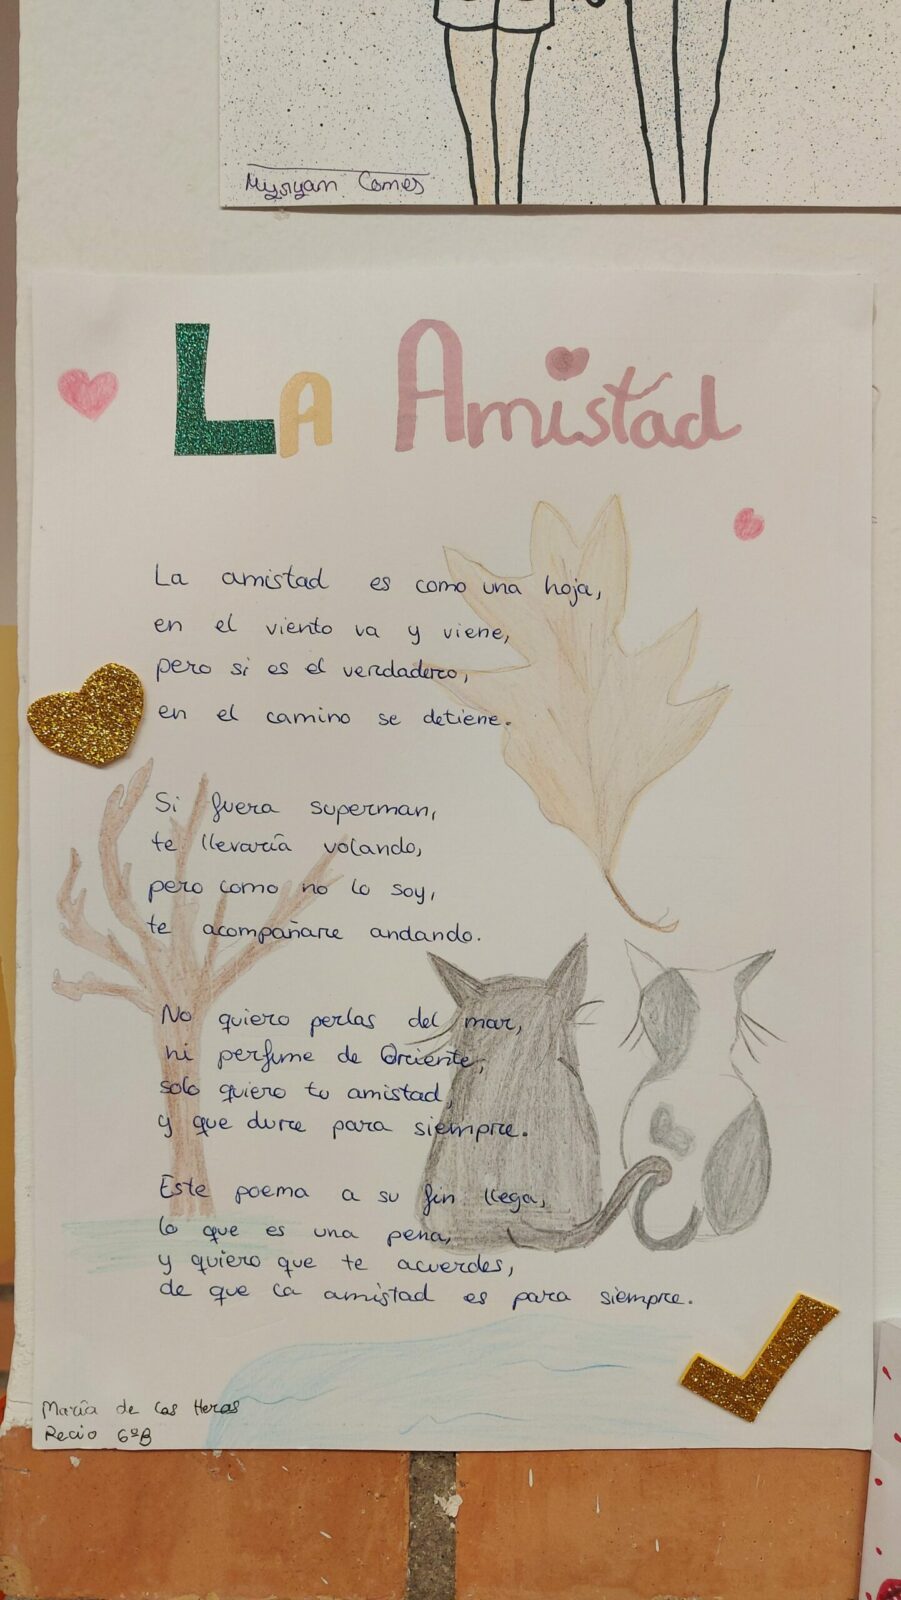 Myryam Comes
La Amistad
La amistad es como una hoja,
en el viento va y viene,
pero si es el verdadero,
en el camino se detiene.
Si fuera superman,
te llevaría volando,
pero como no lo soy,
te acompañare andando.
No quiero perlas del mar,
ni perfume de Oriente,
solo quiero tu amistad,
y que dure para siempre.
Este poema a su fin llega,
lo que es una pena,
y quiero que te acuerdes,
de que la amistad es para siempre.
María de las Heras
Recio 6ºB